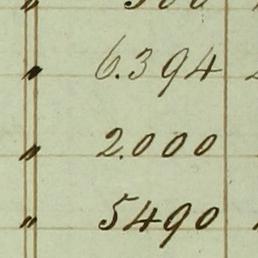 " 6.394
" 2.000
" 5490